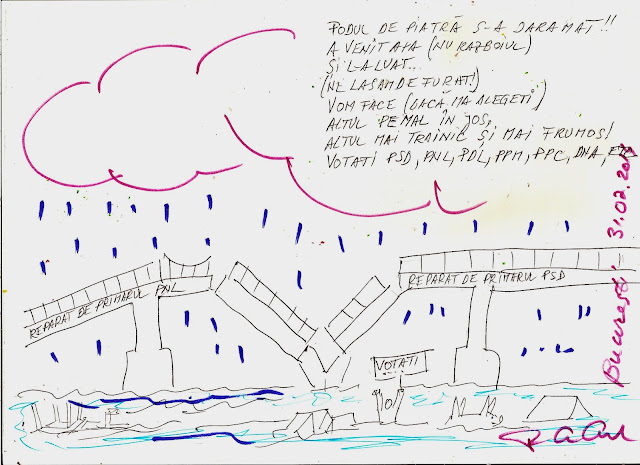 PODUL DE PIATRĂ S-A DARAMAT!!
A VENIT APA (NU RAZBOIUL)
ȘI L-A LUAT...
(NE LASAM DE FURAT!)
VOM FACE (DACĂ, MA ALEGETI,)
ALTUL PE MAL ÎN JOS,
ALTUL MAI TRAINIC ȘI MAI FRUMOS!
VOTATI PSD, PNL, PDL, PPM, PPC, DNA,
REPARAT DE PRIMARUL PNL
REPARAT DE PRIMARUL PSD
VOTATI
București